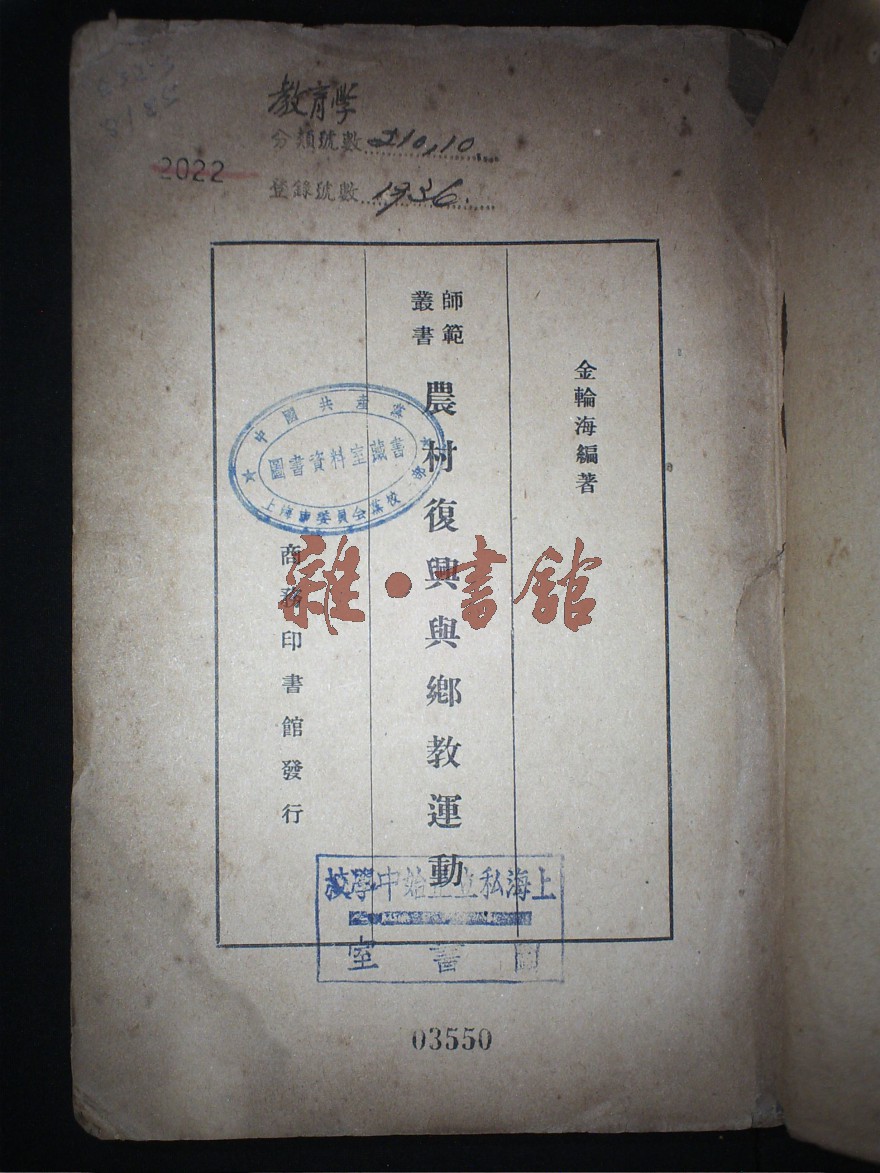 教育學
分類號數 210,10
2022
登錄號數 1936.
金輪海編著
師範
叢書
農村復興與鄉教運動
商務印書館發行
中國共產黨
上海市委員会黨校
圖書資料室藏書
雜·書舘
上海私立正始中學校
圖書室
03550